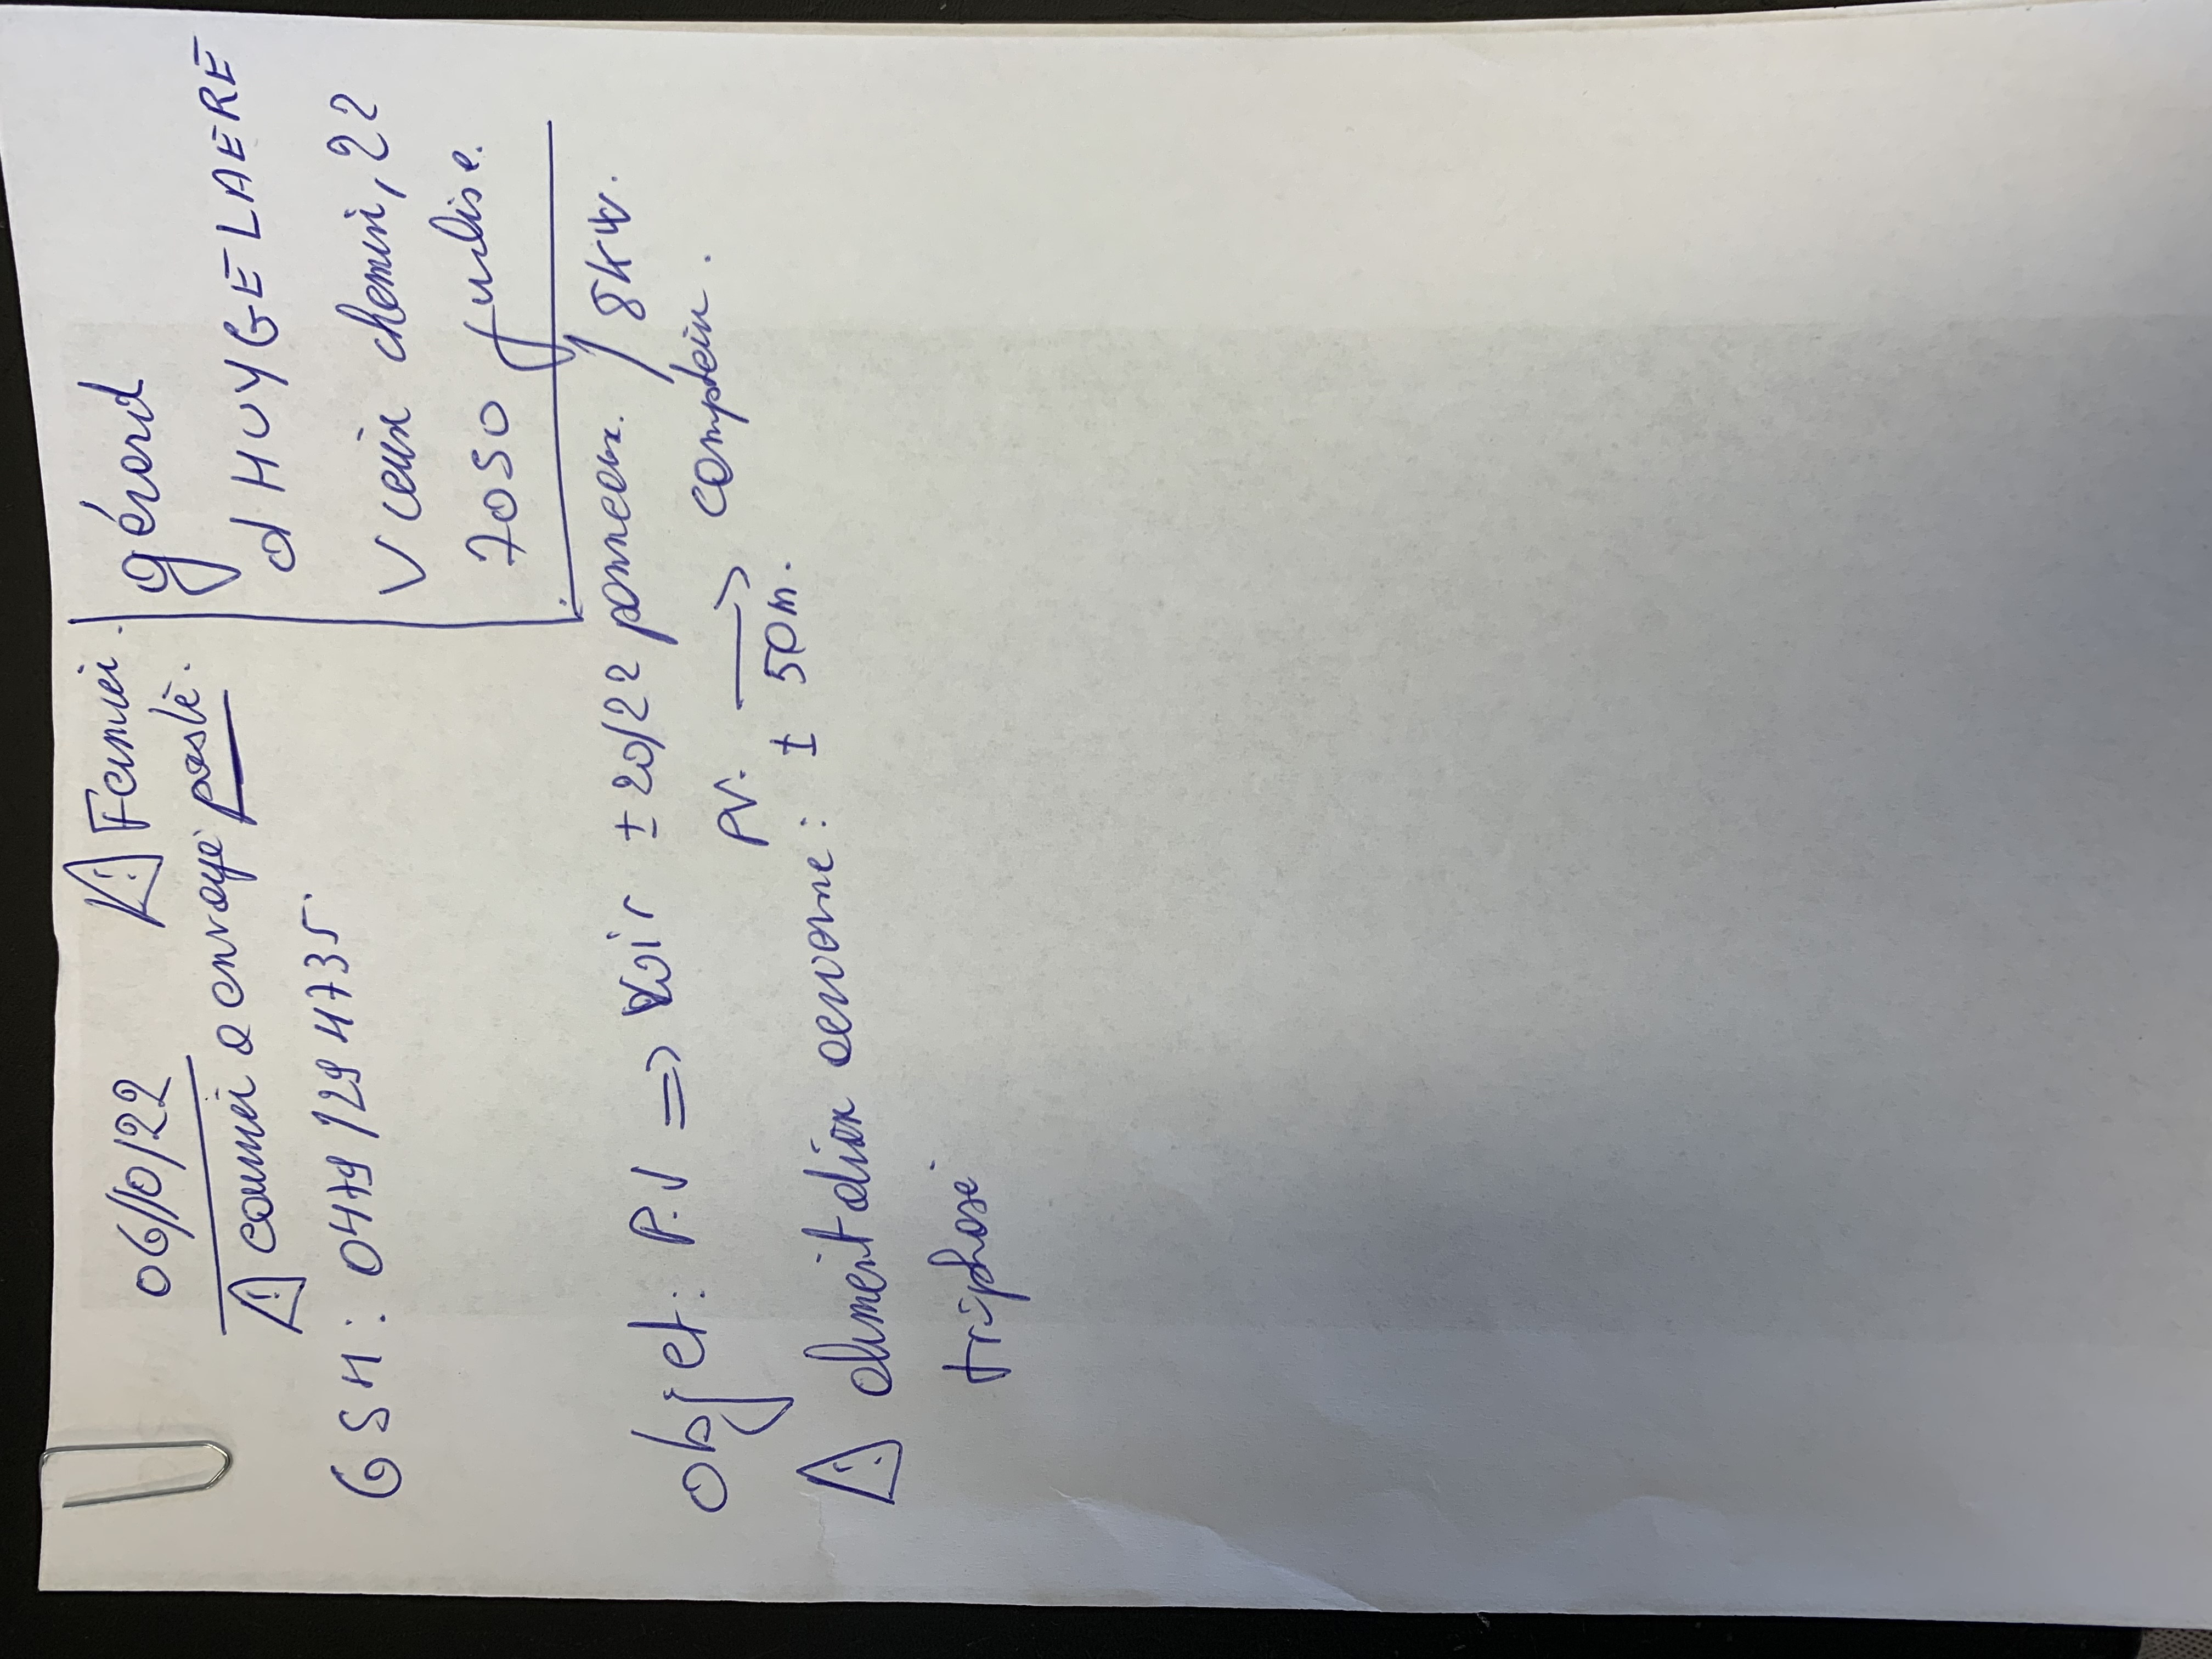 06/10/22
⚠ Fermier.
⚠ courrier a envoyé poste.
GSM : 0479/29 47 35.
gérard
d HUYGELAERE
Vieux chemin, 22
7050 Jurbise.
objet : P.V => Voir ± 20/22 panneaux / 8KW.
PV. -> compteur.
⚠ alimentation : ± 50m.
triphasé